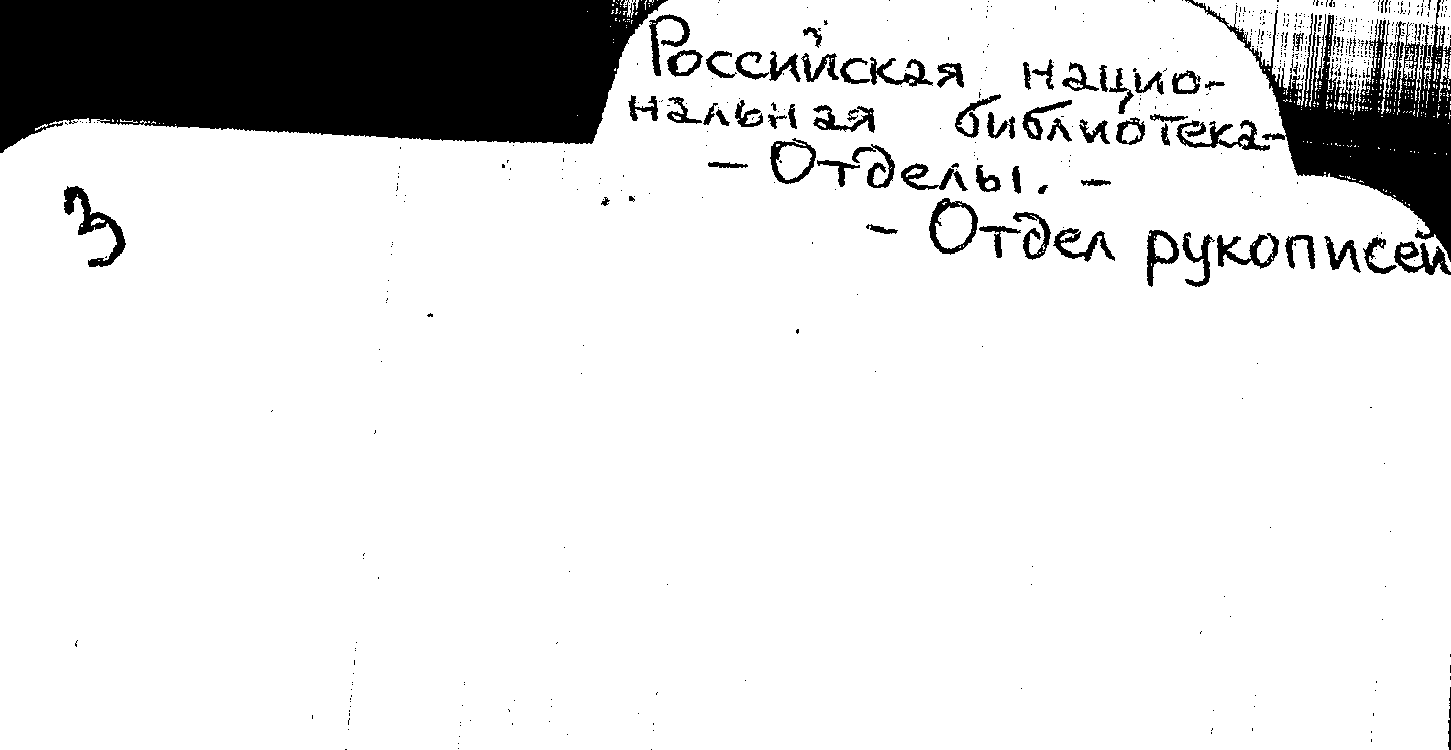 Российская нацио-
нальная библиотека-
- Отделы. -
- Отдел рукописей
3